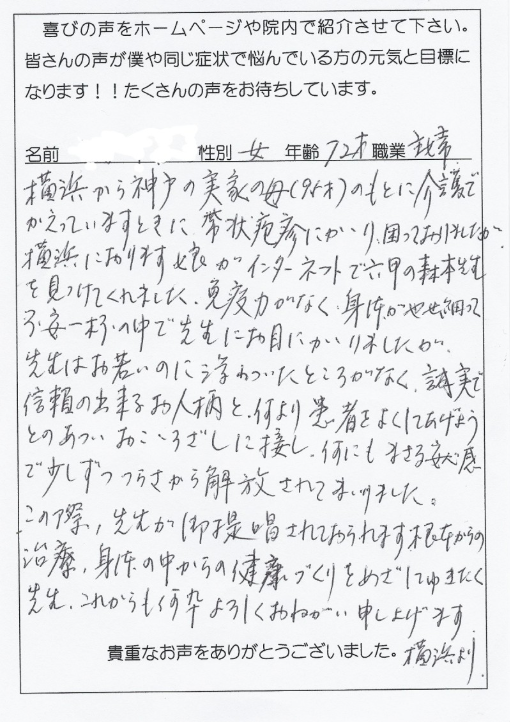 喜びの声をホームページや院内で紹介させて下さい。
皆さんの声が僕や同じ症状で悩んでいる方の元気と目標に
なります！！たくさんの声をお待ちしています。
名前 性別 女 年齢 72才 職業 主婦
横浜から神戸の実家の母(95才)のもとに介護で
かえっていますときに、帯状疱疹にかかり、困っておりましたが
横浜におります娘がインターネットで六甲の森本先生
を見つけてくれました。免疫力がなく、身体がやせ細って
不安一杯の中で先生にお目にかかりましたが、
先生はお若いのに浮わついたところがなく、誠実で
信頼の出来るお人柄と、何より患者をよくしてあげよう
とのあついおこころざしに接し、何にもまさる安心感
で少しずつつらさから解放されてまいりました。
この際、先生が御提唱されておられます根本からの
治療、身体の中からの健康づくりをめざしてゆきたく
先生、これからも何卒よろしくおねがい申し上げます
貴重なお声をありがとうございました。 横浜より